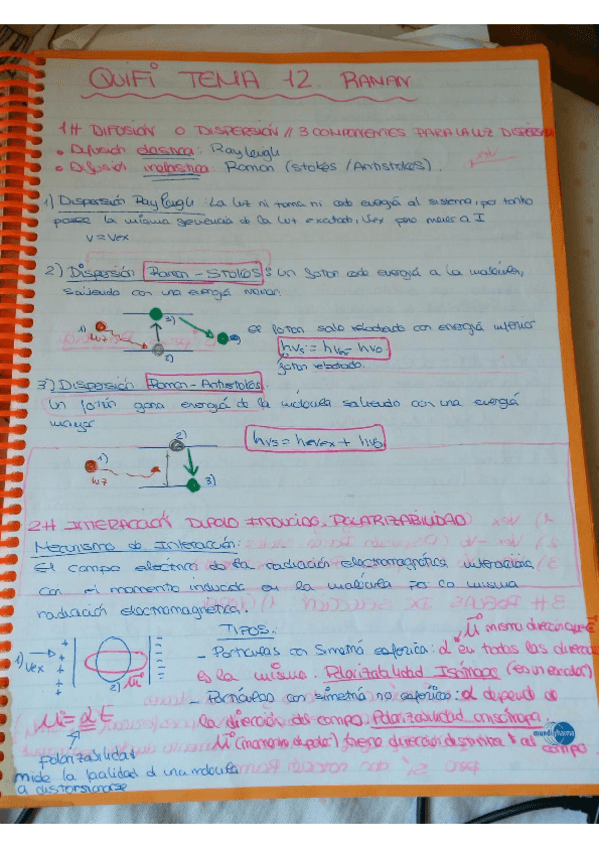 QUIFI TEMA 12. RAMAN
1# DIFUSIÓN O DISPERSIÓN // 3 COMPONENTES PARA LA LUZ
• Difusión elástica: Rayleigh
• Difusión inelástica: Raman (Stokes / Antistokes).
1) Dispersión Rayleigh: La luz ni toma ni cede energía al sistema, por tanto
posee la misma frecuencia de la luz excitada, νex pero menor I
ν = νex
2) Dispersión Raman - Stokes: Un foton cede energía a la molécula,
saliendo con una energía menor.
1)
luz
2)
3)
El foton sale rebotado con energía inferior
hνs = hνex - hνo
foton rebotado.
3) Dispersión Raman - Antistokes.
Un fotón gana energía de la molécula saliendo con una energía
mayor
1)
luz
2)
3)
hνs = hνex + hνo
2# INTERACCIÓN DIPOLO INDUCIDO. POLARIZABILIDAD
Mecanismo de Interacción:
El campo electrico de la radiación electromagnética interacciona
con el momento inducido en la molécula por la misma
radiación electromagnetica.
TIPOS:
μ misma direccion que E
- Partículas con Simetría esférica: α en todas las
es la misma. Polarizabilidad Isótropa (es un escalar)
- Partículas con simetría no esférica: α depende de
la dirección del campo. Polarizabilidad anisótropa.
μ (momento dipolar) tiene dirección distinta al campo
1) νex
2) μ
μ = α E
polarizabilidad
mide la facilidad d una molécula
a distorsionarse
mundipharma